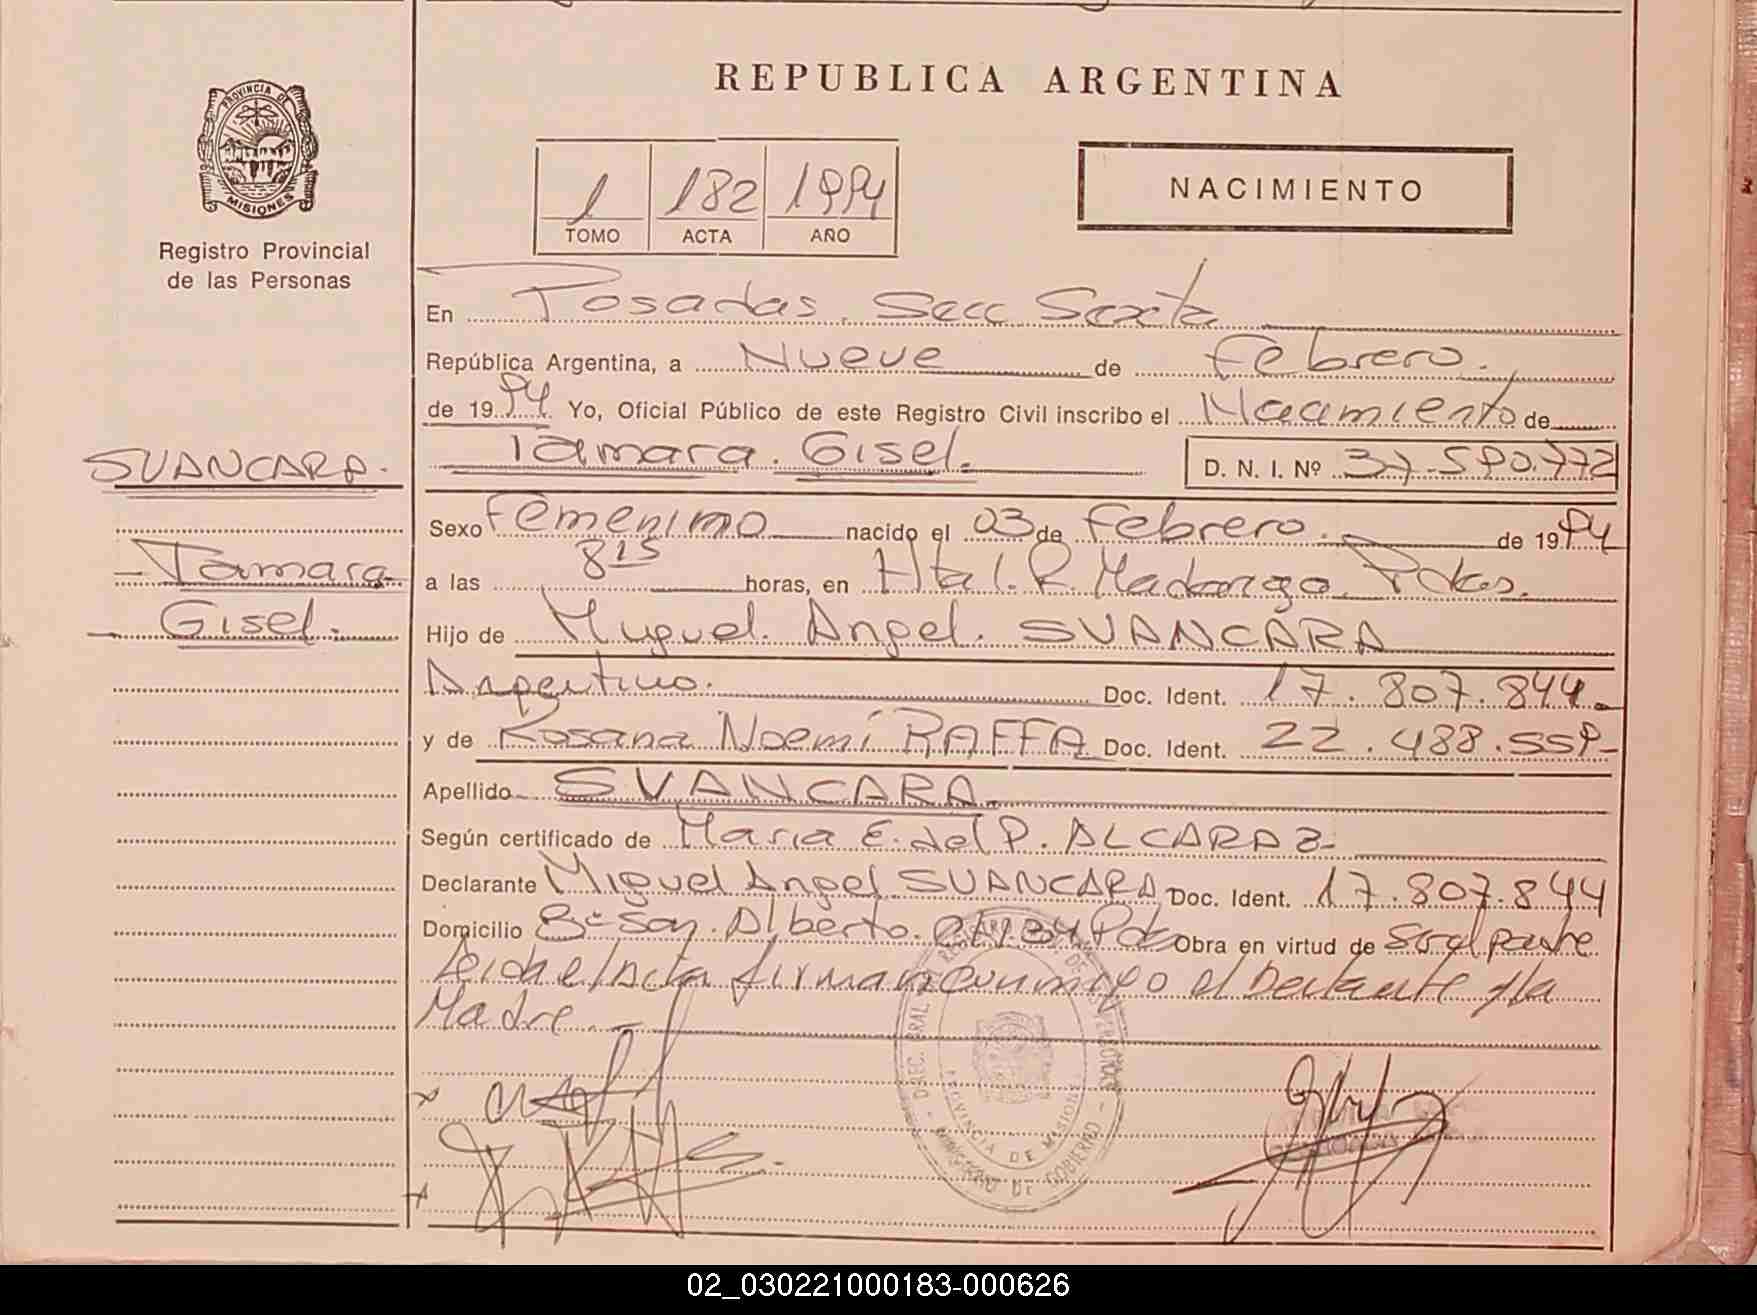 REPUBLICA ARGENTINA
PROVINCIA DE
MISIONES
Registro Provincial
de las Personas
1 182 1994
TOMO ACTA AÑO
NACIMIENTO
En Posadas. Secc Sexta
República Argentina, a Nueve de Febrero.
de 1994. Yo, Oficial Público de este Registro Civil inscribo el Nacimiento de
Tamara. Gisel. D. N. I. Nº 37.590.772
SUANCARA.
Tamara
Gisel.
Sexo Femenino nacido el 03 de Febrero. de 1994
a las 815 horas, en Htal. R. Madariaga. Pdas.
Hijo de Miguel. Angel. SUANCARA
Argentino. Doc. Ident. 17.807.844.
y de Rosana Noemí RAFFA Doc. Ident. 22.488.559-
Apellido SUANCARA.
Según certificado de Maria E. del P. ALCARAZ-
Declarante Miguel Angel SUANCARA Doc. Ident. 17.807.844
Domicilio Bº San. Alberto. Pdas Obra en virtud de Ser el padre
Leida el Acta firman conmigo el Declarante y la
Madre.
PROVINCIA DE MISIONES
MINISTERIO DE GOBIERNO
02_030221000183-000626